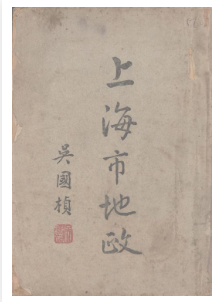 上海市地政
吳國楨